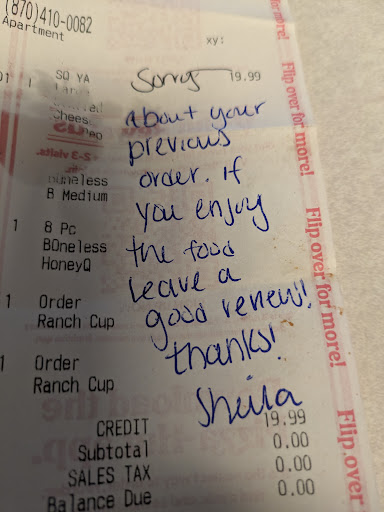 (870)410-0082
Apartment
xy:
SQ YA 19.99
Sorry
about your
previous
order. if
you enjoy
the food
leave a
good renew!!
thanks!
Sheila
B Medium
1 8 Pc
BOneless
HoneyQ
1 Order
Ranch Cup
1 Order
Ranch Cup
CREDIT 19.99
Subtotal 0.00
SALES TAX 0.00
Balance Due 0.00
Flip over for more!
Flip over for more!
Flip over